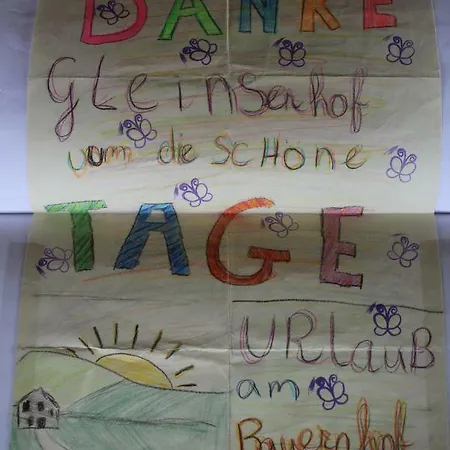 DANKE
GLeinserhof
vom die SCHÖNE
TAGE
URLauB
am
Bauernhof